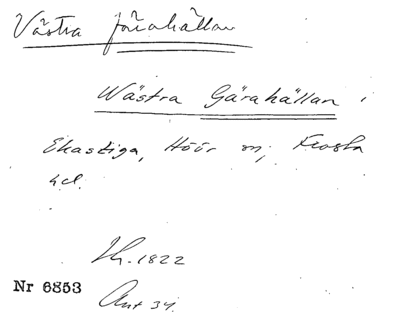 Västra Järahällan
Wästra Gärahällan
Ekastiga, Höör sn, Frosta
hd.
1822
Nr 6853
Ant 34.